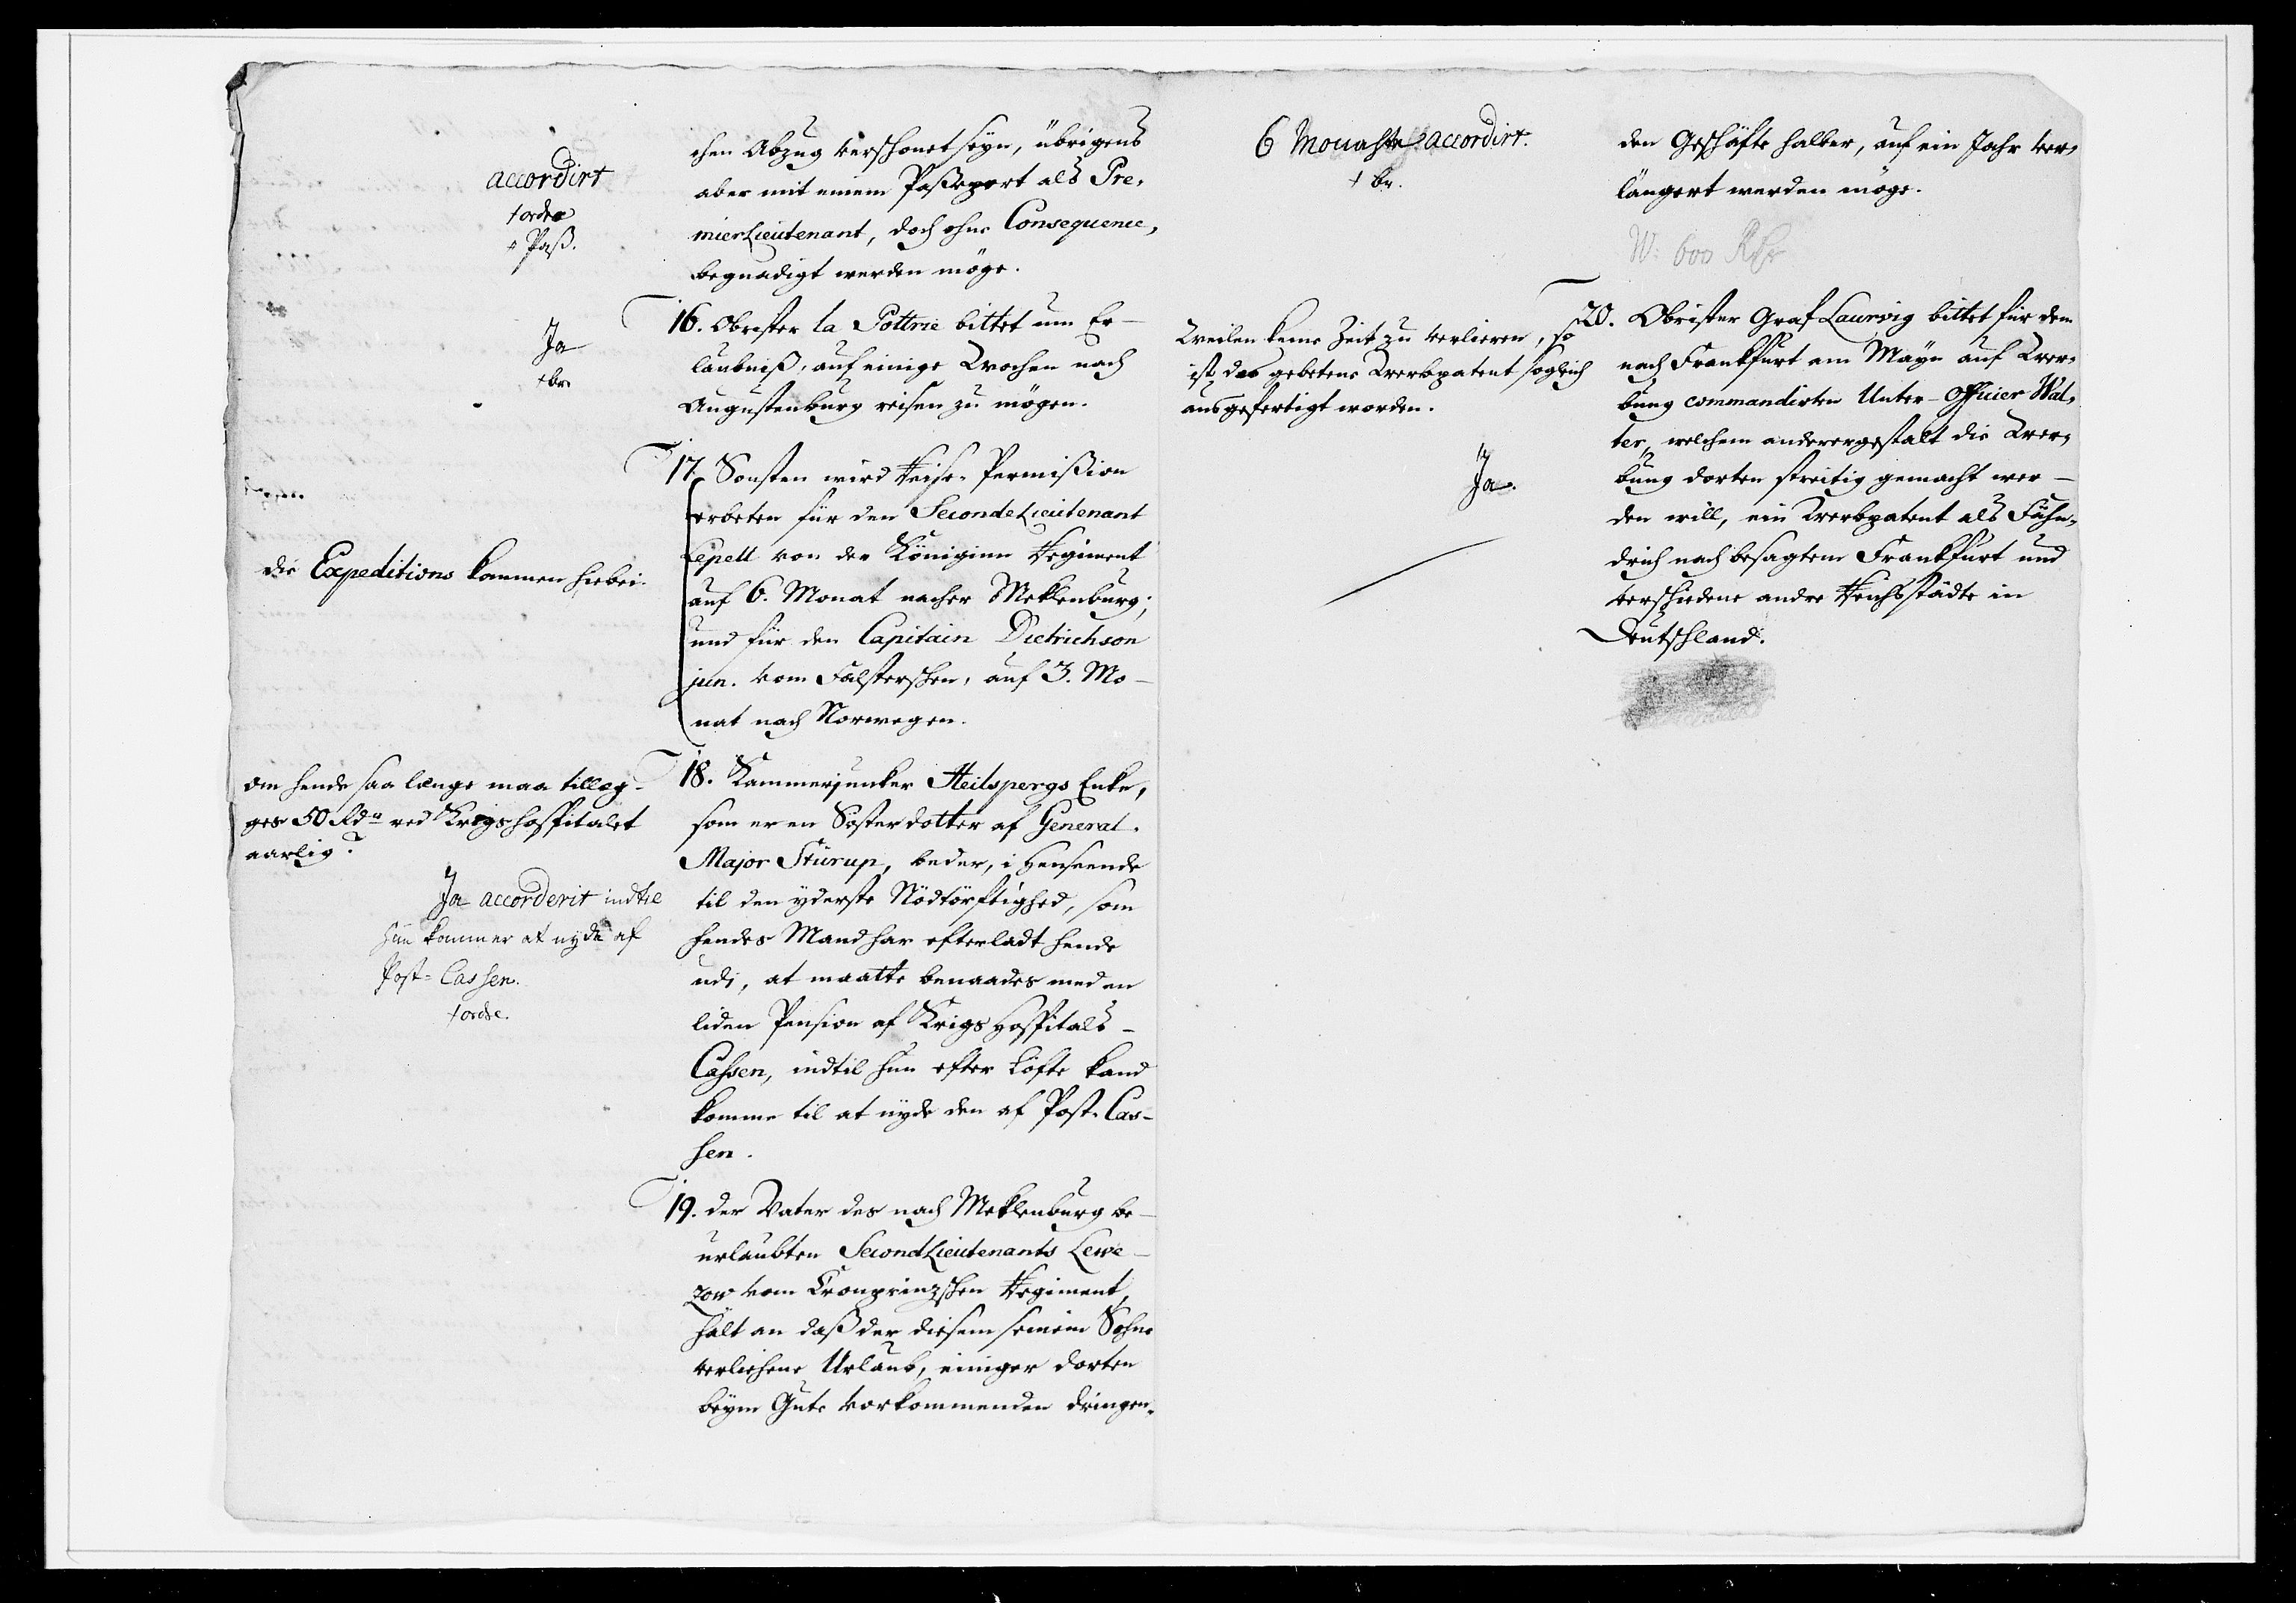 accordirt
† ordre
† Paß.
chen Abzug verschonet seyn, übrigens
aber mit einem Paßeport als Pre-
mierLieutenant, doch ohne Consequence,
begnadigt werden möge.
Ja
† br.
16. Obrister la Pottrie bittet um Er-
laubniß, auf einige Wochen nach
Augustenburg reisen zu mögen.
17. Sonsten wird Reise-Permißion
erbeten für den SecondeLieutenant
Lepell von der Königinn Regiment
auf 6. Monat nacher Meklenburg;
und für den Capitain Dietrichson
jun. vom Falsterschen, auf 3. Mo-
nat nach Norwegen.
die Expeditions kommen hiebei.
om hende saa længe maa tillæg-
ges 50 Rdr ved Krigshospitalet
aarlig?
Ja accorderit indtil
hun kommer at nyde af
Post-Cassen.
† ordre.
18. Kammerjunker Heilspergs Enke,
som er en Søsterdotter af General-
Major Stürup, beder, i Henseende
til den yderste Nødtørftighed, som
hendes Mand har efterladt hende
udi, at maatte benaades med en
liden Pension af Krigs Hospitals-
Cassen, indtil hun efter Løfte kand
komme til at nyde den af Post-Cas-
sen.
19. der Vater des nach Meklenburg be-
urlaubten SecondLieutenants Lewe-
zow vom Cronprinzschen Regiment,
hält an daß der diesem seinem Sohne
verliehene Urlaub, einiger dorten
beym Gute vorkommenden dringen-
6 Monahte accordirt.
† br.
den Geschäfte halber, auf ein Jahr ver-
längert werden möge.
W: 600 Rthr
Weilen keine Zeit zu verlieren, so
ist das gebetene Werbpatent sogleich
ausgefertigt worden.
Ja.
20. Obrister Graf Laurvig bittet für dem
nach Frankfurt am Mayn auf Wer-
bung commandirten Unter-Officier Wal-
ter, welchem anderergestalt die Wer-
bung dorten streitig gemacht wer-
den will, ein Werbpatent als Fähn-
drich nach besagtem Frankfurt und
verschiedene andre Reichsstädte in
Deutschland.